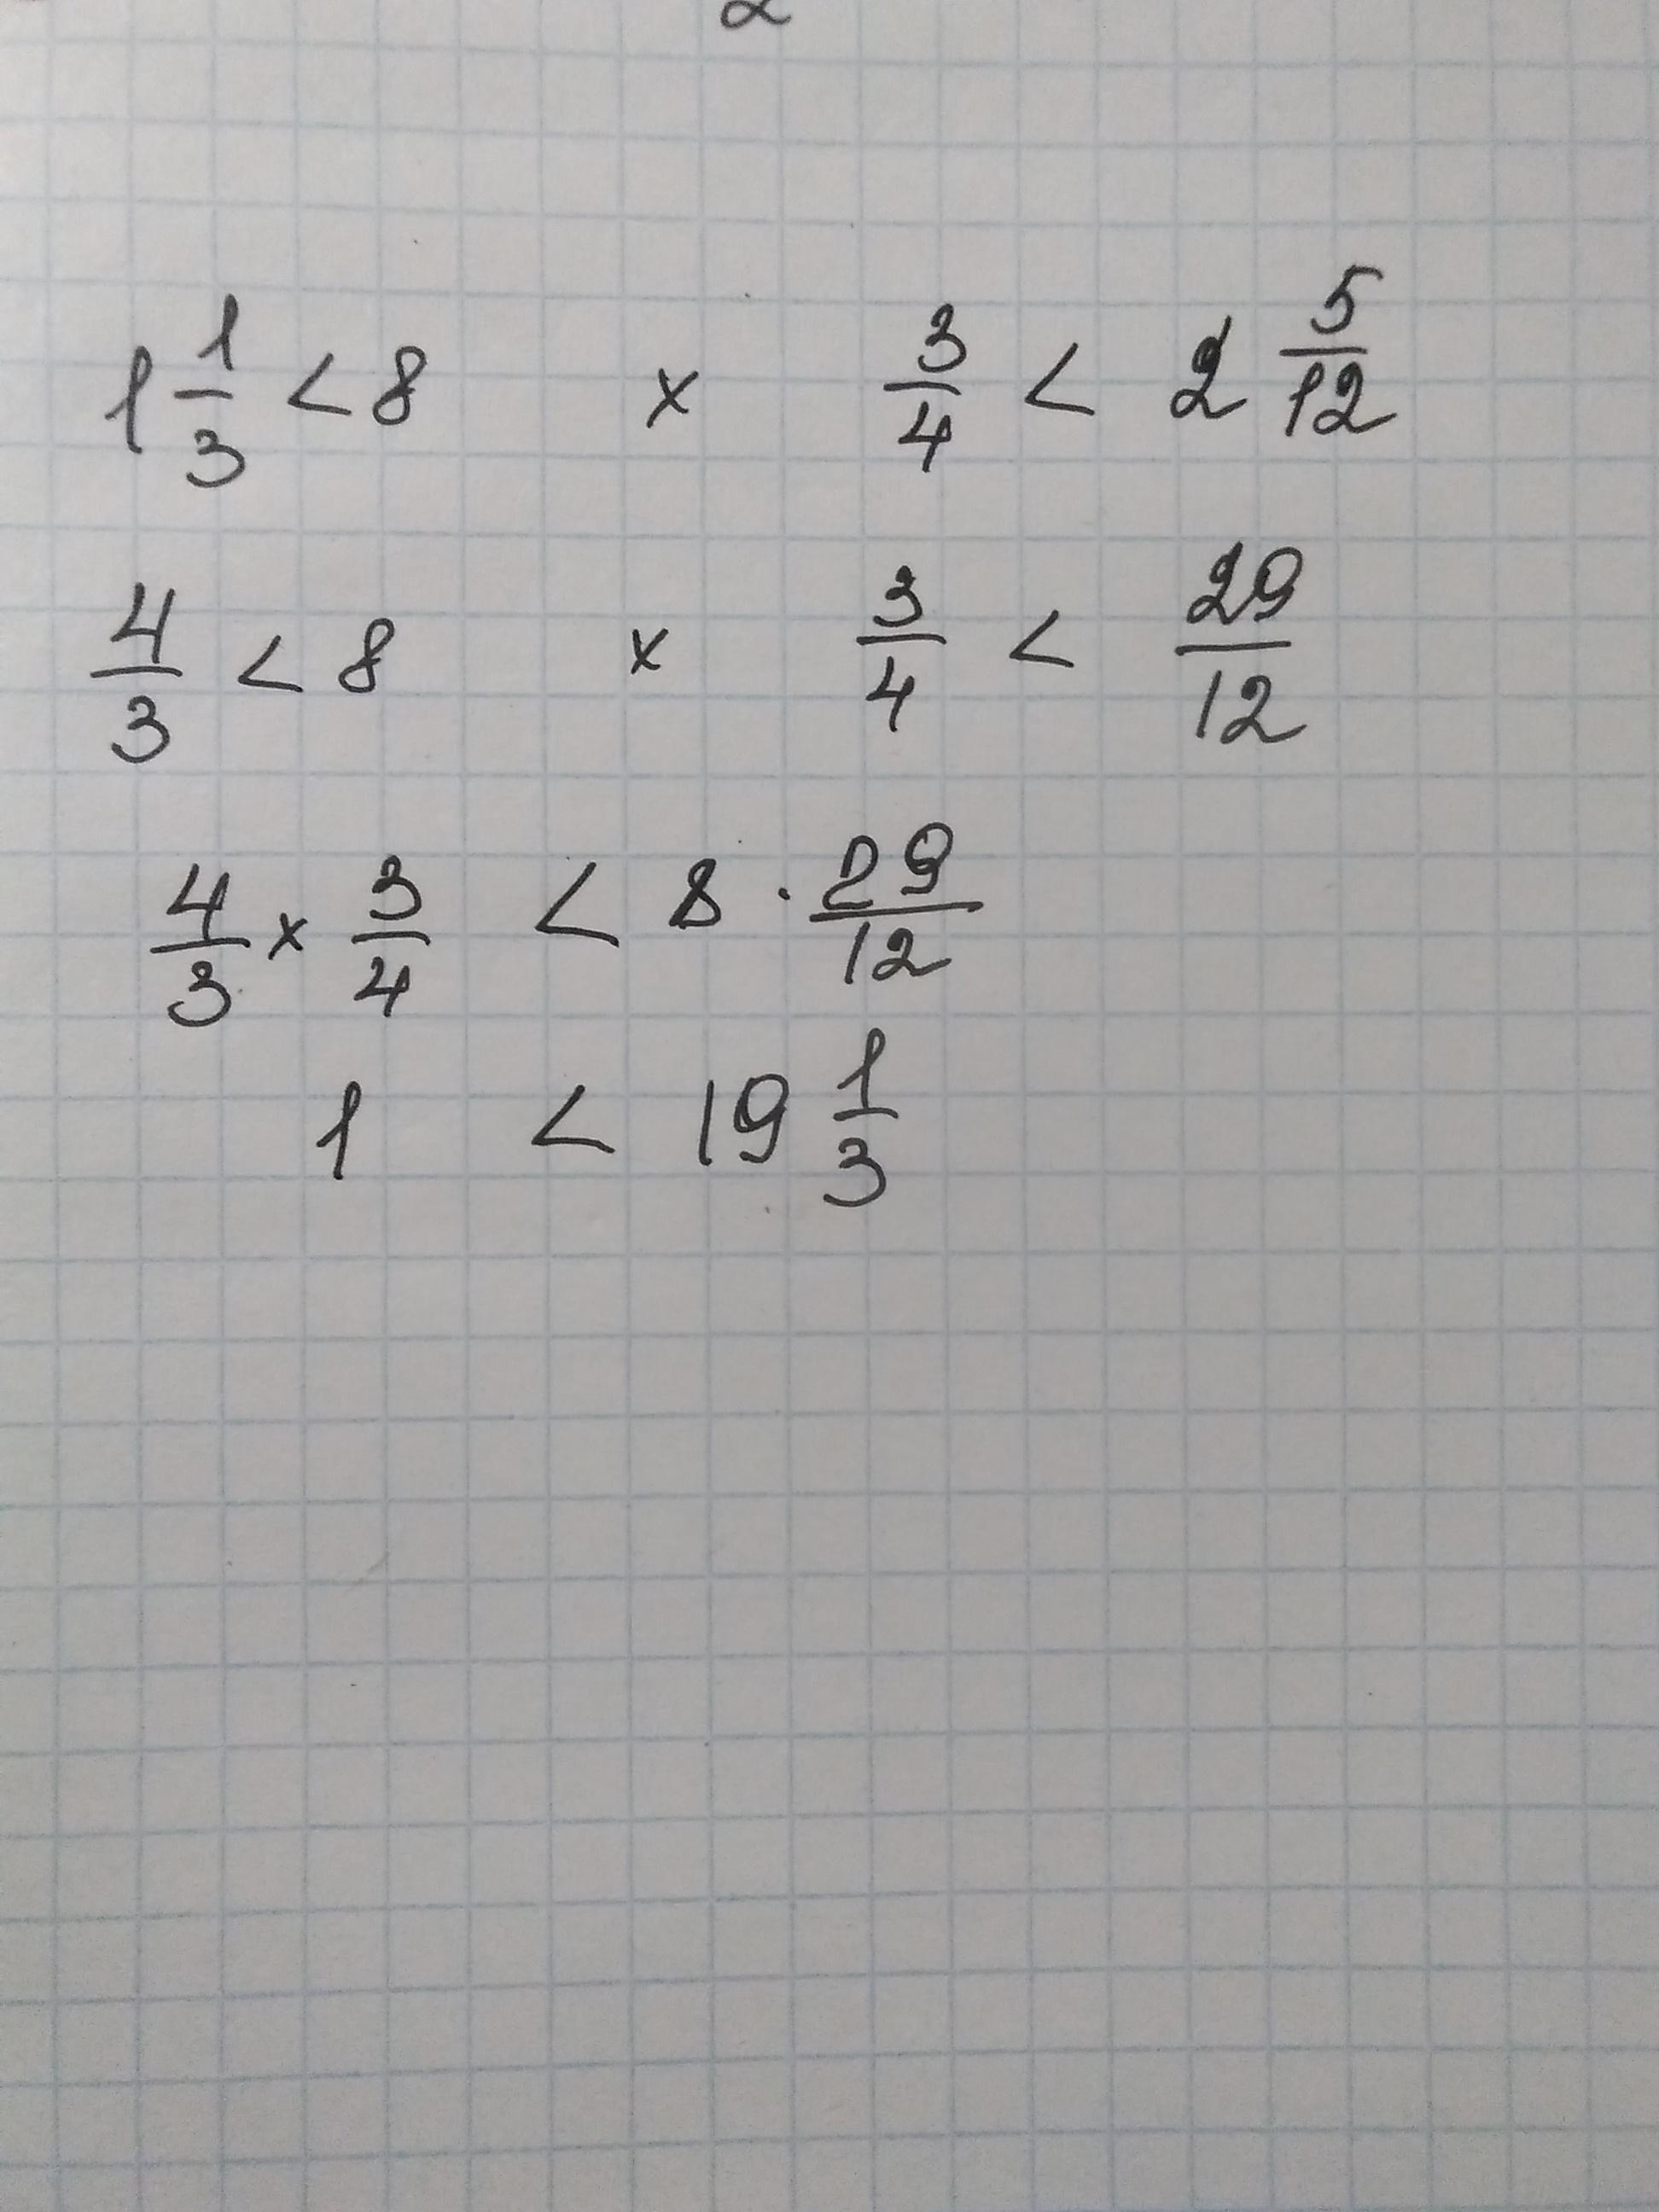 1 1/3 < 8 × 3/4 < 2 5/12
4/3 < 8 × 3/4 < 29/12
4/3 × 3/4 < 8 · 29/12
1 < 19 1/3